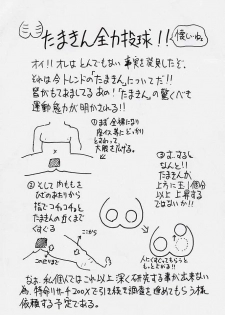 たまきん全力投球!!
オイ!!オレはとんでもない事実を発見したぞ。
それは今トレンドの「たまきん」についてだ!!
皆がもてあましてるあの!「たまきん」の驚くべき
運動能力が明かされる!!
①まず全裸になり
座イス等にどっかり
とすわって
大股を広げる。
②そして内ももを
ひざのあたりから
指でコチョコチョと
たまきんの近くまで
くすぐる
ここから
このへんまで
③する
なんと!!
たまきんが
上方に玉1個分
以上上昇する
ではないか!!
人にくすぐってもらうと
もっとあがる!!
なお、私個人ではこれ以上深く研究する事が出来ない
為、特命リサーチ200Xで引き続き調査を進めてもらう様
依頼する予定である。